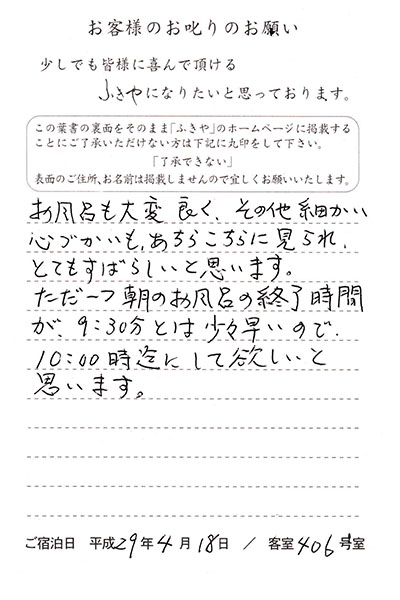 お客様のお叱りのお願い
少しでも皆様に喜んで頂ける
ふきやになりたいと思っております。
この葉書の裏面をそのまま「ふきや」のホームページに掲載する
ことにご了承いただけない方は下記に丸印をして下さい。
「了承できない」
表面のご住所、お名前は掲載しませんので宜しくお願いいたします。
お風呂も大変良く、その他細かい
心づかいも、あちらこちらに見られ、
とてもすばらしいと思います。
ただ一つ朝のお風呂の終了時間
が、9:30分とは少々早いので、
10:00時迄にして欲しいと
思います。
ご宿泊日 平成29年4月18日 / 客室406号室